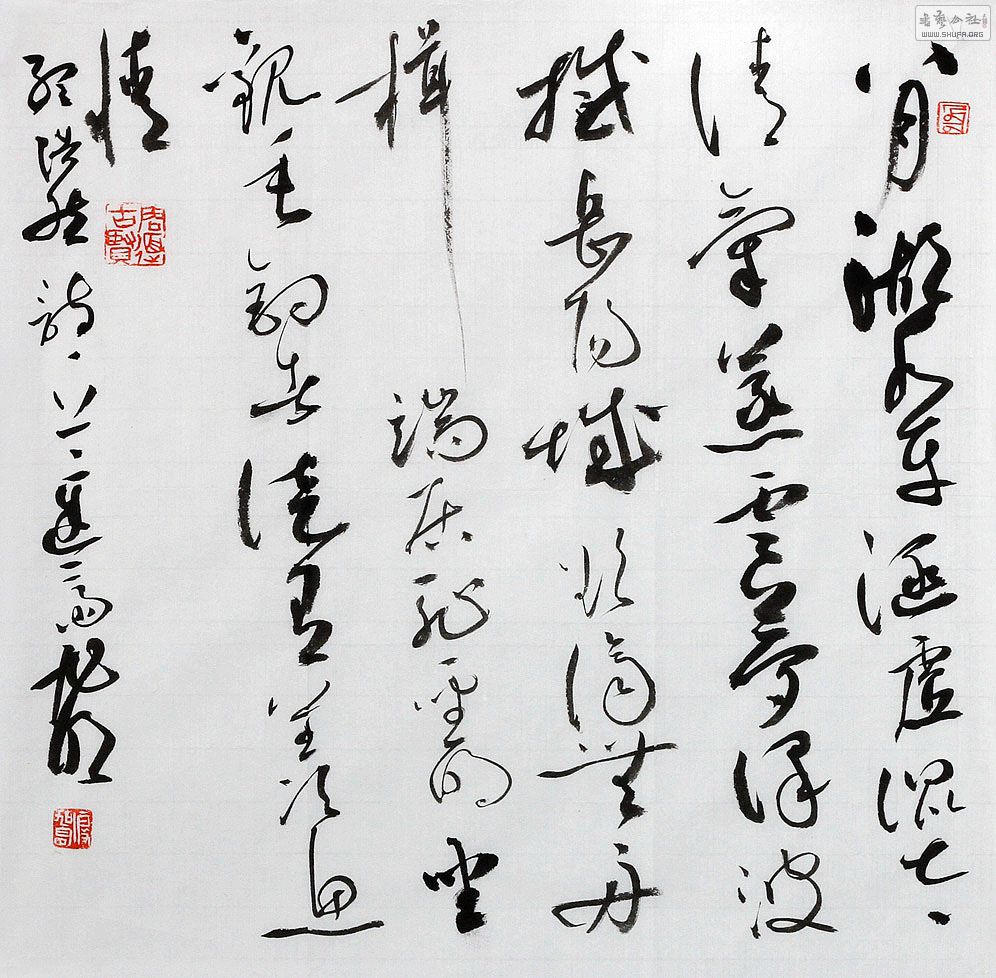 书艺公社
WWW.SHUFA.ORG
八月湖水平涵虚混太
清氣蒸雲夢澤波
撼岳陽城欲濟無舟
楫端居耻聖明坐
觀垂釣者徒有羡魚
情
孟浩然詩